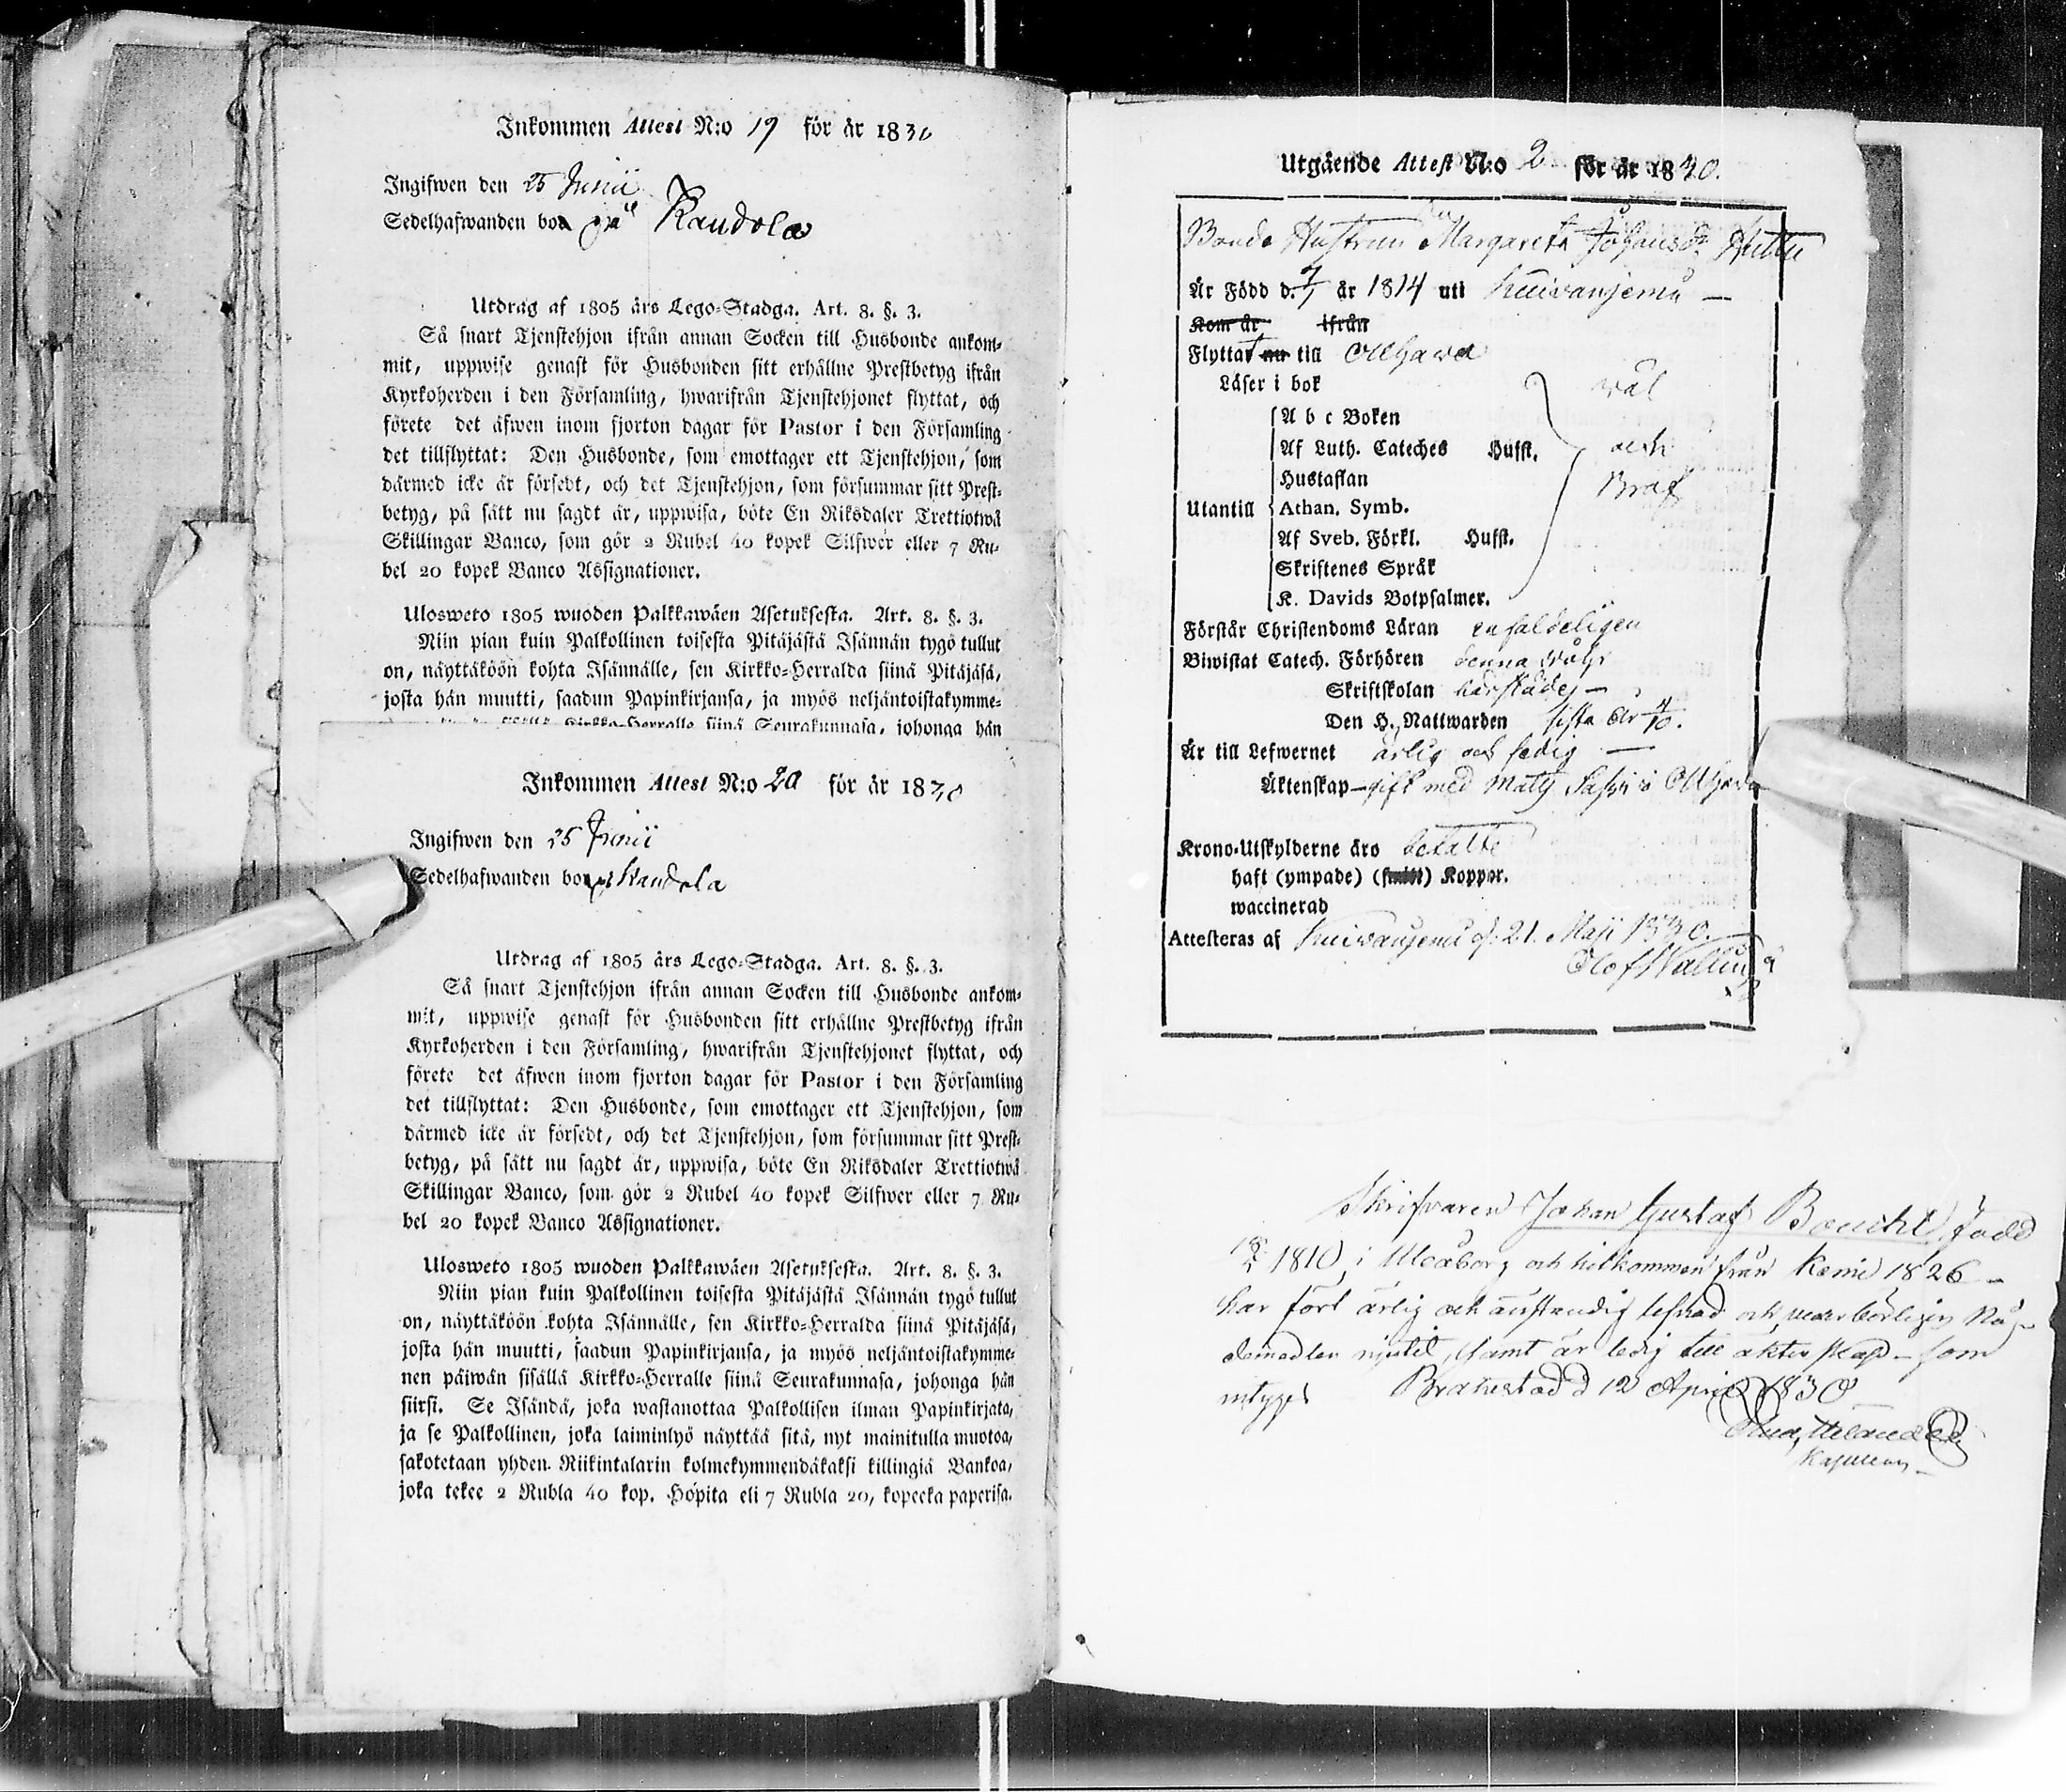 Inkommen Attest N:o 19 för år 1830
Ingifwen den 25 Junii
Sedelhafwanden bor på Kaudola
Utdrag af 1805 års Lego-Stadga. Art. 8. §. 3.
Så snart Tjenstehjon ifrån annan Socken till Husbonde ankom-
mit, uppwise genast för Husbonden sitt erhållne Prestbetyg ifrån
Kyrkoherden i den Församling, hwarifrån Tjenstehjonet flyttat, och
förete det äfwen inom fjorton dagar för Pastor i den Församling
det tillflyttat: Den Husbonde, som emottager ett Tjenstehjon, som
därmed icke är försedt, och det Tjenstehjon, som försummar sitt Prest-
betyg, på sätt nu sagdt är, uppwisa, böte En Riksdaler Trettiotwå
Skillingar Banco, som gör 2 Rubel 40 kopek Silfwer eller 7 Ru-
bel 20 kopek Banco Assignationer.
Ulosweto 1805 wuoden Palkkawäen Asetuksesta. Art. 8. §. 3.
Niin pian kuin Palkollinen toisesta Pitäjästä Isännän tygö tullut
on, näyttäköön kohta Isännälle, sen Kirkko-Herralda siinä Pitäjäsä,
josta hän muutti, saadun Papinkirjansa, ja myös neljäntoistakymme-
Kirkko-Herralle siinä Seurakunnasa, johonga hän
Inkommen Attest N:o 20 för år 1830
Ingifwen den 25 Junii
Sedelhafwanden bor på Kaudola
Utdrag af 1805 års Lego-Stadga. Art. 8. §. 3.
Så snart Tjenstehjon ifrån annan Socken till Husbonde ankom-
mit, uppwise genast för Husbonden sitt erhållne Prestbetyg ifrån
Kyrkoherden i den Församling, hwarifrån Tjenstehjonet flyttat, och
förete det äfwen inom fjorton dagar för Pastor i den Församling
det tillflyttat: Den Husbonde, som emottager ett Tjenstehjon, som
därmed icke är försedt, och det Tjenstehjon, som försummar sitt Prest-
betyg, på sätt nu sagdt är, uppwisa, böte En Riksdaler Trettiotwå
Skillingar Banco, som gör 2 Rubel 40 kopek Silfwer eller 7 Ru-
bel 20 kopek Banco Assignationer.
Ulosweto 1805 wuoden Palkkawäen Asetuksesta. Art. 8. §. 3.
Niin pian kuin Palkollinen toisesta Pitäjästä Isännän tygö tullut
on, näyttäköön kohta Isännälle, sen Kirkko-Herralda siinä Pitäjäsä,
josta hän muutti, saadun Papinkirjansa, ja myös neljäntoistakymme-
nen päiwän sisällä Kirkko-Herralle siinä Seurakunnasa, johonga hän
siirsi. Se Isändä, joka wastanottaa Palkollisen ilman Papinkirjata,
ja se Palkollinen, joka laiminlyö näyttää sitä, nyt mainitulla muotoa,
sakotetaan yhden Riikintalarin kolmekymmendäkaksi killingiä Bankoa,
joka tekee 2 Rubla 40 kop. Hópita eli 7 Rubla 20, kopecka paperisa.
Utgående Attest N:o 2 för år 1830.
Bonde Hustrun Margareta Johansdr Huttu
Är Född d. år 1814 uti Kuivaniemi —
Kom år ifrån
Flyttat nu till Olhava
Läser i bok wäl
A b c Boken
Af Luth. Cateches Hufft. och
Hustaflan Braf
Utantill Athan. Symb.
Af Sveb. Förkl. Hufft.
Skriftenes Språk
K. Davids Botpsalmer.
Förstår Christendoms Läran enfaldeligen
Biwistat Catech. Förhören denna
Skriftskolan härstädes —
Den H. Nattwarden sista år 4/10.
Är till Lefwernet ärlig och sedig —
Äktenskap — gift med Matts i Olhava
Krono-Utskylderne äro betalte
haft (ympade) (smitt) Koppor.
waccinerad
Attesteras af Kuivaniemi d. 21. Maji 1830.
Olof Wallin
Skrifvaren Johan Gustaf Boucht född
1810 i Uleåborg och hitkommen från Kemi 1826 –
har fört ärlig och anständig lefnad och vederbörligen Nå-
demedlen njutit, samt är ledig till äktenskap – som
intygas Brahestad d 12 April 1830
Helander
Kapellan –